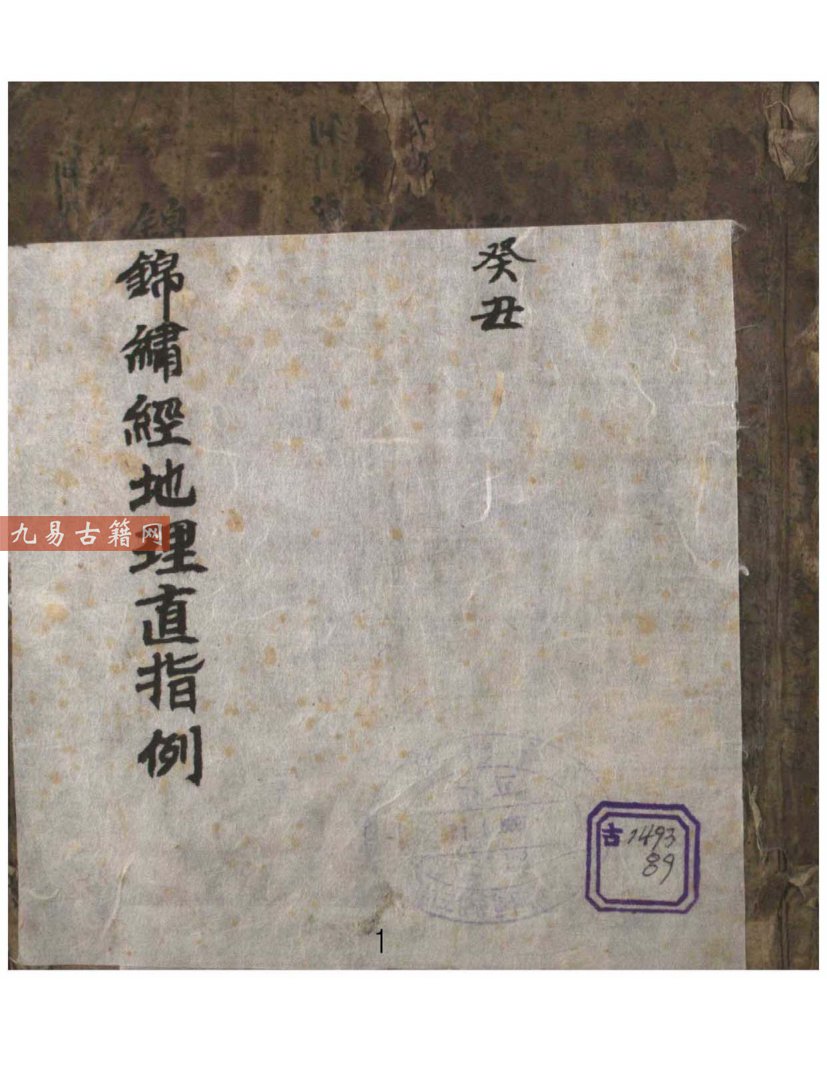 癸丑
錦繡經地理直指例
九易古籍网
古1493
89
1